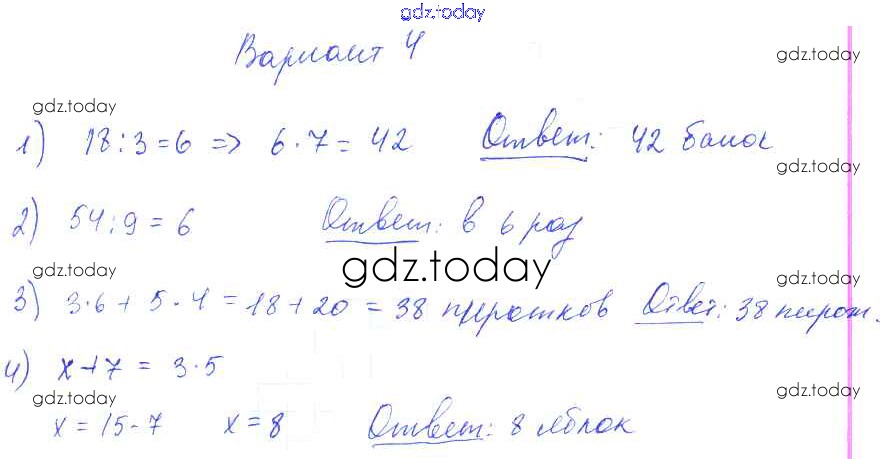 gdz.today
Вариант 4
gdz.today
gdz.today
1) 18:3=6 => 6·7=42 Ответ: 42 банок
gdz.today
2) 54:9=6 Ответ: в 6 раз
gdz.today
gdz.today
gdz.today
3) 3·6+5·4=18+20=38 пирожков Ответ: 38 пирож.
4) x+7=3·5
gdz.today
gdz.today
x=15-7 x=8 Ответ: 8 яблок